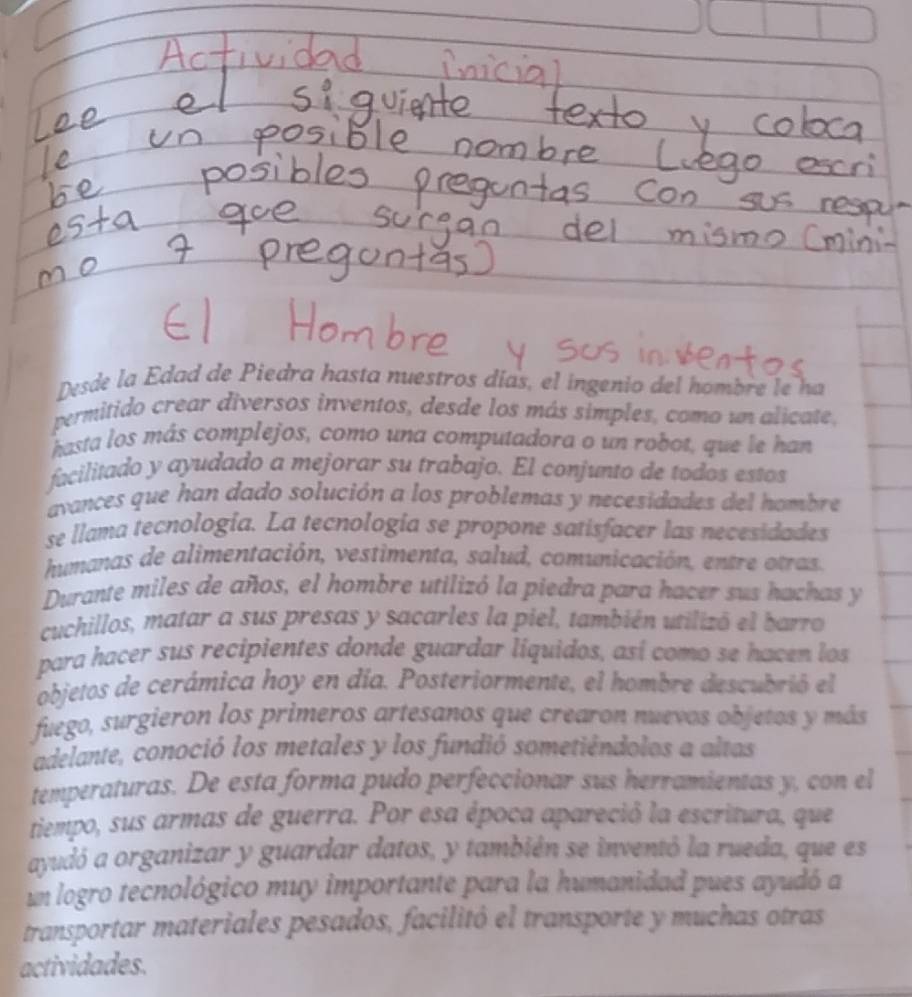 Actividad inicial
Lee el siguiente texto y coloca
le un posible nombre Luego escri
be posibles preguntas con sus respu-
esta que surgan del mismo (mini-
mo 7 preguntas)
El Hombre y sus inventos
Desde la Edad de Piedra hasta nuestros días, el ingenio del hombre le ha
permitido crear diversos inventos, desde los más simples, como un alicate,
hasta los más complejos, como una computadora o un robot, que le han
facilitado y ayudado a mejorar su trabajo. El conjunto de todos estos
avances que han dado solución a los problemas y necesidades del hombre
se llama tecnología. La tecnología se propone satisfacer las necesidades
humanas de alimentación, vestimenta, salud, comunicación, entre otras.
Durante miles de años, el hombre utilizó la piedra para hacer sus hachas y
cuchillos, matar a sus presas y sacarles la piel, también utilizó el barro
para hacer sus recipientes donde guardar líquidos, así como se hacen los
objetos de cerámica hoy en día. Posteriormente, el hombre descubrió el
fuego, surgieron los primeros artesanos que crearon nuevos objetos y más
adelante, conoció los metales y los fundió sometiéndolos a altas
temperaturas. De esta forma pudo perfeccionar sus herramientas y, con el
tiempo, sus armas de guerra. Por esa época apareció la escritura, que
ayudó a organizar y guardar datos, y también se inventó la rueda, que es
un logro tecnológico muy importante para la humanidad pues ayudó a
transportar materiales pesados, facilitó el transporte y muchas otras
actividades.